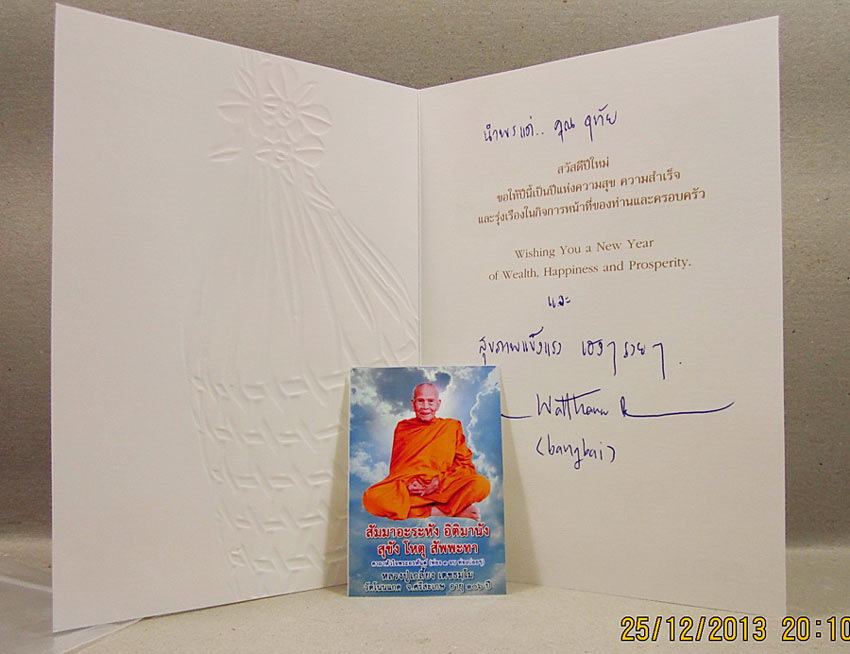 นำพรแด่.. คุณ อุทัย
สวัสดีปีใหม่
ขอให้ปีนี้เป็นปีแห่งความสุข ความสำเร็จ
และรุ่งเรืองในกิจการหน้าที่ของท่านและครอบครัว
Wishing You a New Year
of Wealth, Happiness and Prosperity.
และ
สุขภาพแข็งแรง เฮงๆ รวยๆ.
Watthana R
(bangkai)
สัมมาอะระหัง อิติมานัง
สุขัง โหตุ สัพพะทา
หลวงปู่เกลี้ยง เตชธมฺโม
วัดโนนแกด จ.ศรีสะเกษ อายุ ๑๐๖ ปี
25/12/2013 20:10